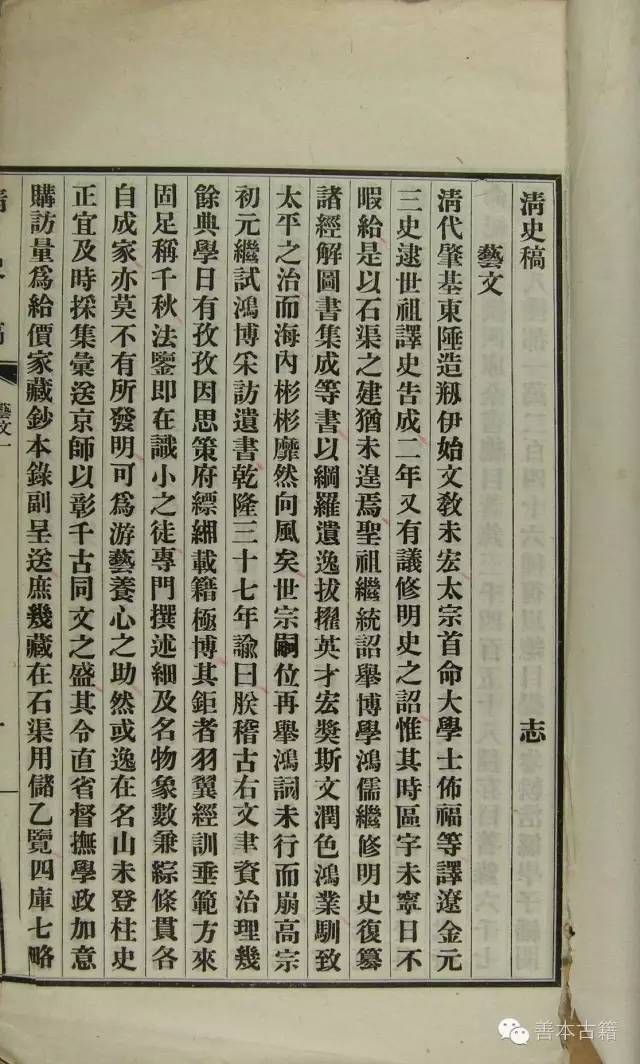 清史稿 志
藝文
清代肇基東陲造刱伊始文敎未宏太宗首命大學士佈福等譯遼金元
三史逮世祖譯史告成二年又有議修明史之詔惟其時區宇未寧日不
暇給是以石渠之建猶未遑焉聖祖繼統詔舉博學鴻儒繼修明史復纂
諸經解圖書集成等書以綱羅遺逸拔擢英才宏奬斯文潤色鴻業馴致
太平之治而海內彬彬靡然向風矣世宗嗣位再舉鴻詞未行而崩高宗
初元繼試鴻博采訪遺書乾隆三十七年諭曰朕稽古右文聿資治理幾
餘典學日有孜孜因思策府縹緗載籍極博其鉅者羽翼經訓垂範方來
固足稱千秋法鑒即在識小之徒專門撰述細及名物象數兼綜條貫各
自成家亦莫不有所發明可爲游藝養心之助然或逸在名山未登柱史
正宜及時採集彙送京師以彰千古同文之盛其令直省督撫學政加意
購訪量爲給價家藏鈔本錄副呈送庶幾藏在石渠用儲乙覽四庫七略
清史稿 藝文一 一
善本古籍